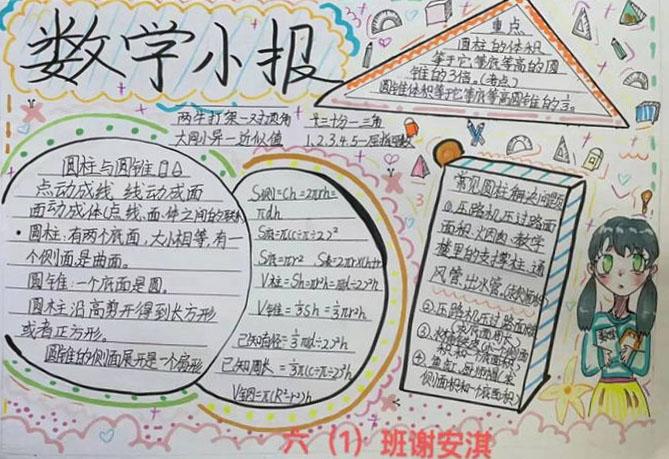 数学小报
重点
圆柱的体积
等于它等底等高的圆
锥的3倍。(考点)
圆锥体积等于它等底等高圆锥的⅓。
两牛打架一对顶角
大同小异一近似值
1、2、3、4、5一屈指可数
圆柱与圆锥
点动成线 线动成面
面动成体(点、线、面、体之间的联系
·圆柱:有两个底面,大小相等,有一
个侧面是曲面。
圆锥:一个底面是圆。
圆柱沿高剪开得到长方形
或者正方形。
圆锥的侧面展开是一个扇形
S侧=Ch=2πrh=
πdh
S底=π(C÷π÷2)²
S底=πr² S表=2πr×(h+r)
V柱=Sh=πr²h=π(d÷2)²h
V锥=⅓Sh=⅓πr²h
已知直径=⅓π(d÷2)²h
已知周长=⅓π(C÷π÷2)²h
V钢=π(R²-r²)h
常见圆柱解决问题
①压路机压过路面
面积、烟囱、教学
楼里的支撑柱、通
风管、出水管
②压路机压过路面
底面周长
积和一个底面积)
侧面积和一个底面积)
数学
六(1)班谢安淇